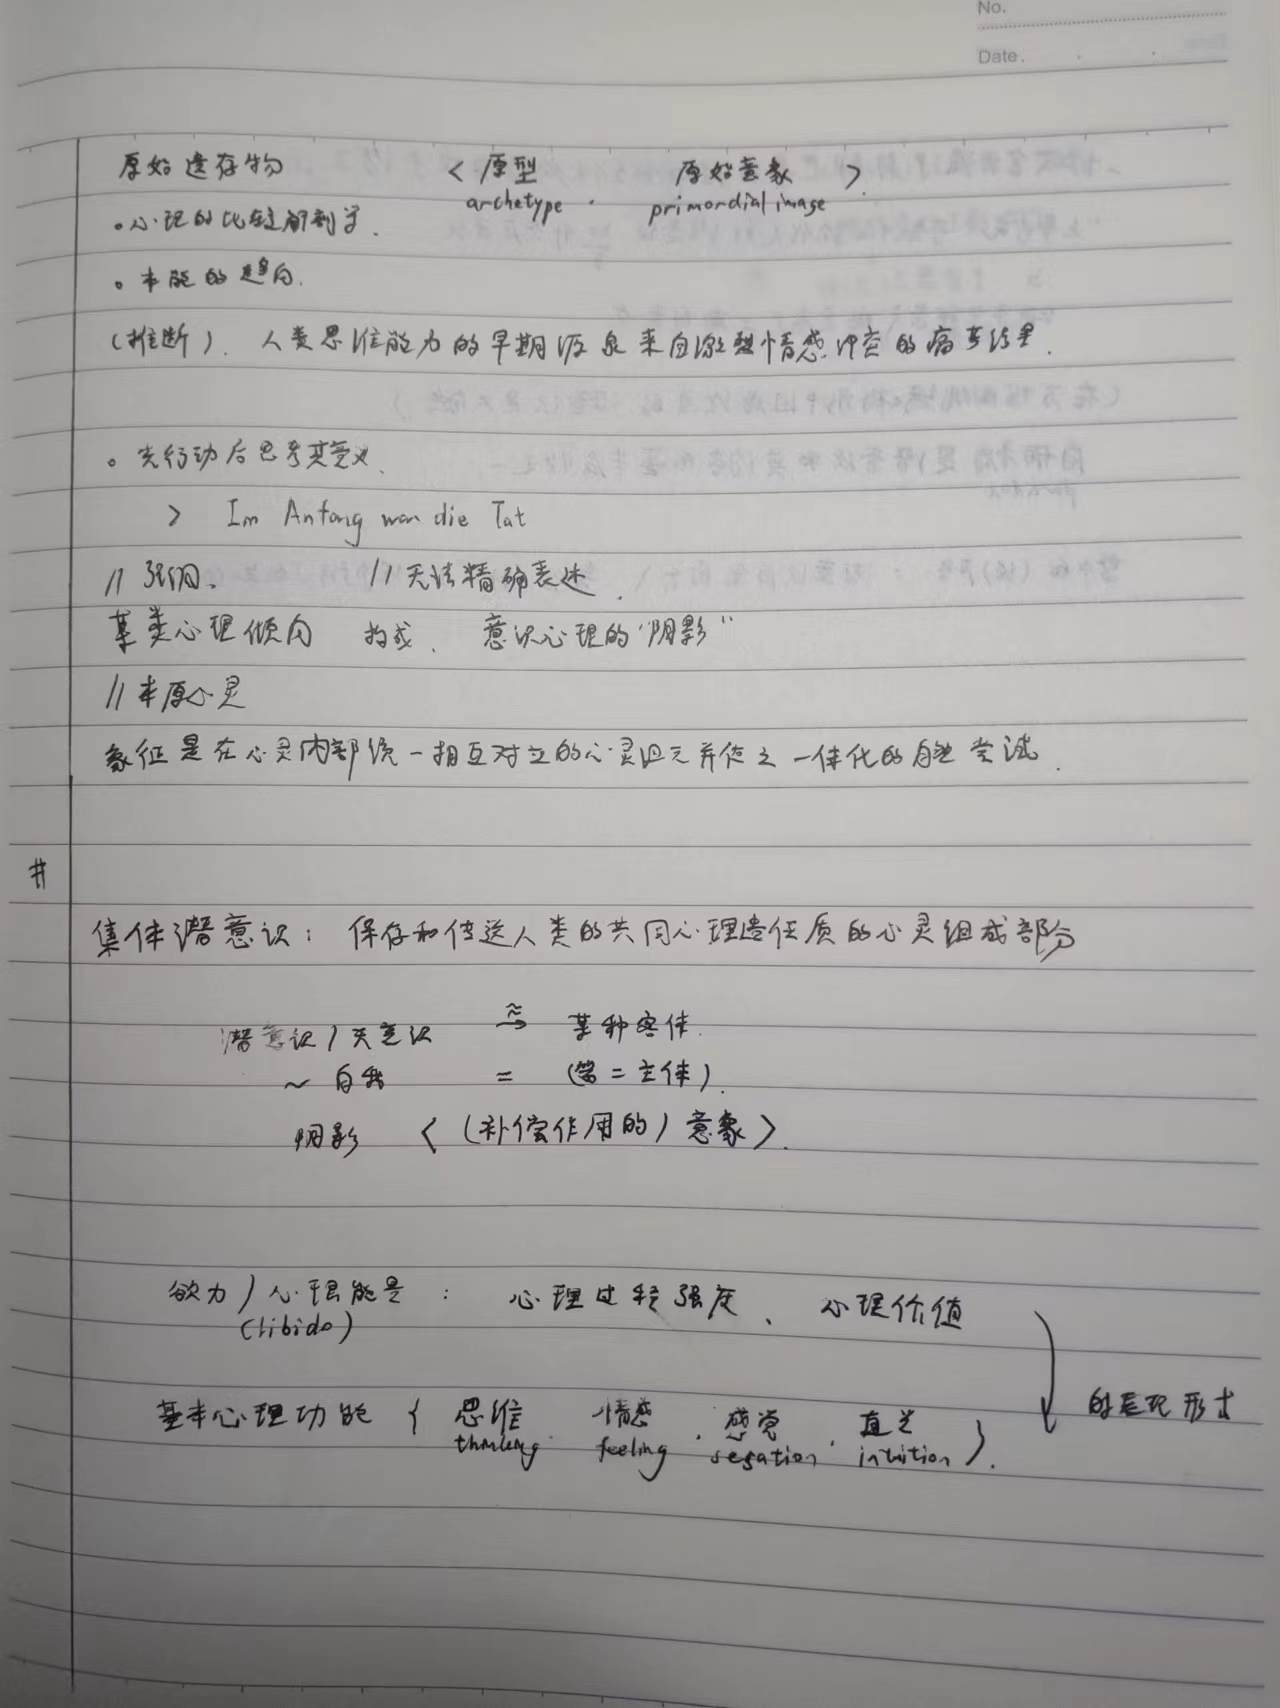 No.
Date.
原始遗存物 < 原型 原始意象 >
archetype . primordial image
。心理的比较解剖学.
。本能的趋向.
(推断). 人类思维能力的早期源泉来自激烈情感冲突的痛苦结果.
。先行动后思考其意义.
> Im Anfang war die Tat
// 强调. // 无法精确表述.
某类心理倾向 构成. 意识心理的“阴影”
// 本原心灵
象征是在心灵内部统一相互对立的心灵因元并使之一体化的自然尝试.
#
集体潜意识: 保存和传送人类的共同心理遗传质的心灵组成部分
潜意识/无意识 ≈→ 某种客体.
~ 自我 = (第二主体).
阴影 < (补偿作用的) 意象 >.
欲力/心理能量: 心理过程强度、心理价值
(libido)
基本心理功能 { 思维. 情感. 感觉. 直觉 }. 的表现形式
thinking feeling segation intuition